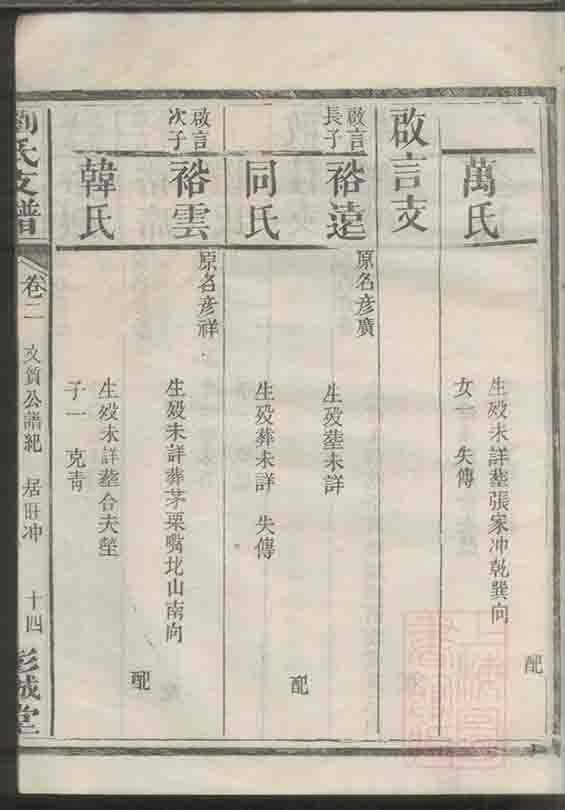 配
萬氏
生殁未詳塟張家冲乾巽向
女一 失傳
啟言支
啟言
長子
裕遠
原名彥廣
生殁塟未詳
配
同氏
生殁葬未詳 失傳
啟言
次子
裕雲
原名彥祥
生殁未詳葬茅栗嘴北山南向
配
韓氏
生殁未詳塟合夫塋
子一 克青
劉氏支譜
卷二
文質公譜紀
居旺冲
十四
彭城堂